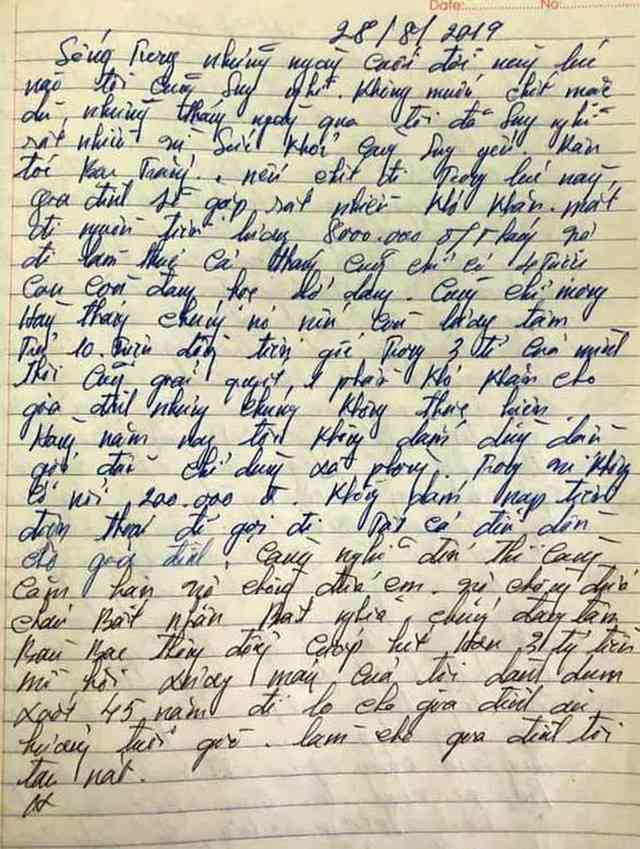 Date: No:
28/8/2019
Sống Trong những ngày cuối đời này lúc
nào tôi cũng suy nghĩ. Không muốn chết mặc
dù, những tháng ngày qua tôi đã suy nghĩ
rất nhiều vì sức khỏe cũng suy yếu
tới. nếu chết đi Trong lúc này,
gia đình sẽ gặp rất nhiều khó khăn. mất
đi nguồn tiền lương 8000.000 đ/Tháng vợ
đi làm thuê cả tháng cũng chỉ có 4 Triệu
con còn đang học dở dang. Cũng chỉ mong
Hàng tháng chúng nó còn lương tâm
Trả 10. Triệu đồng tiền gốc Trong 3 tỉ của mình
thôi cũng giải quyết 1 phần khó khăn cho
gia đình nhưng chúng không thực hiện.
Hàng năm nay tôi không dám dùng dầu
gội đầu chỉ dùng xà phòng. Trong ví không
có nổi 200.000 đ. không dám nạp tiền
điện thoại để gọi đi Tất cả để dồn
cho gia đình. Càng nghĩ đến thì càng
căm hận vợ chồng đứa em. vợ chồng đứa
cháu Bất nhân Bất nghĩa, chúng đang tâm
cướp hết Hơn 3 tỷ tiền
mồ hôi xương máu của tôi dành dụm
suốt 45 năm để lo cho gia đình
hưởng tuổi già. làm cho gia đình tôi
tan nát.